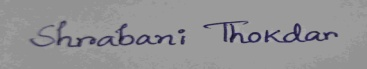 Shrabani Thokdar